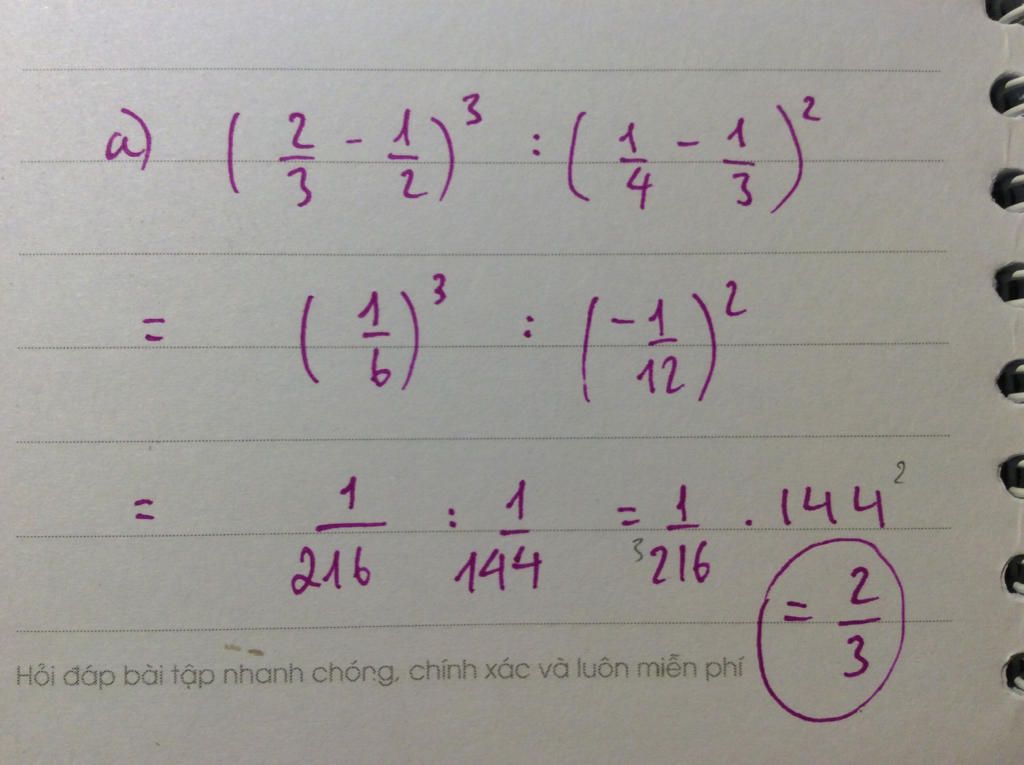 a) (2/3 - 1/2)³ : (1/4 - 1/3)²
= (1/6)³ : (-1/12)²
= 1/216 : 1/144 = 1/³216 . 144²
= 2/3
Hỏi đáp bài tập nhanh chóng, chính xác và luôn miễn phí